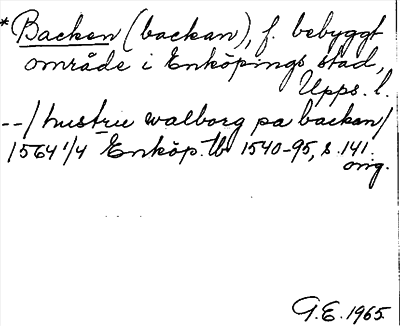 *Backen (backan), f. bebyggt
område i Enköpings stad,
Upps. l.
--/hustru walborg pa backan/
1564 1/4 Enköp. tb 1540-95, s. 141.
orig.
G.E. 1965.